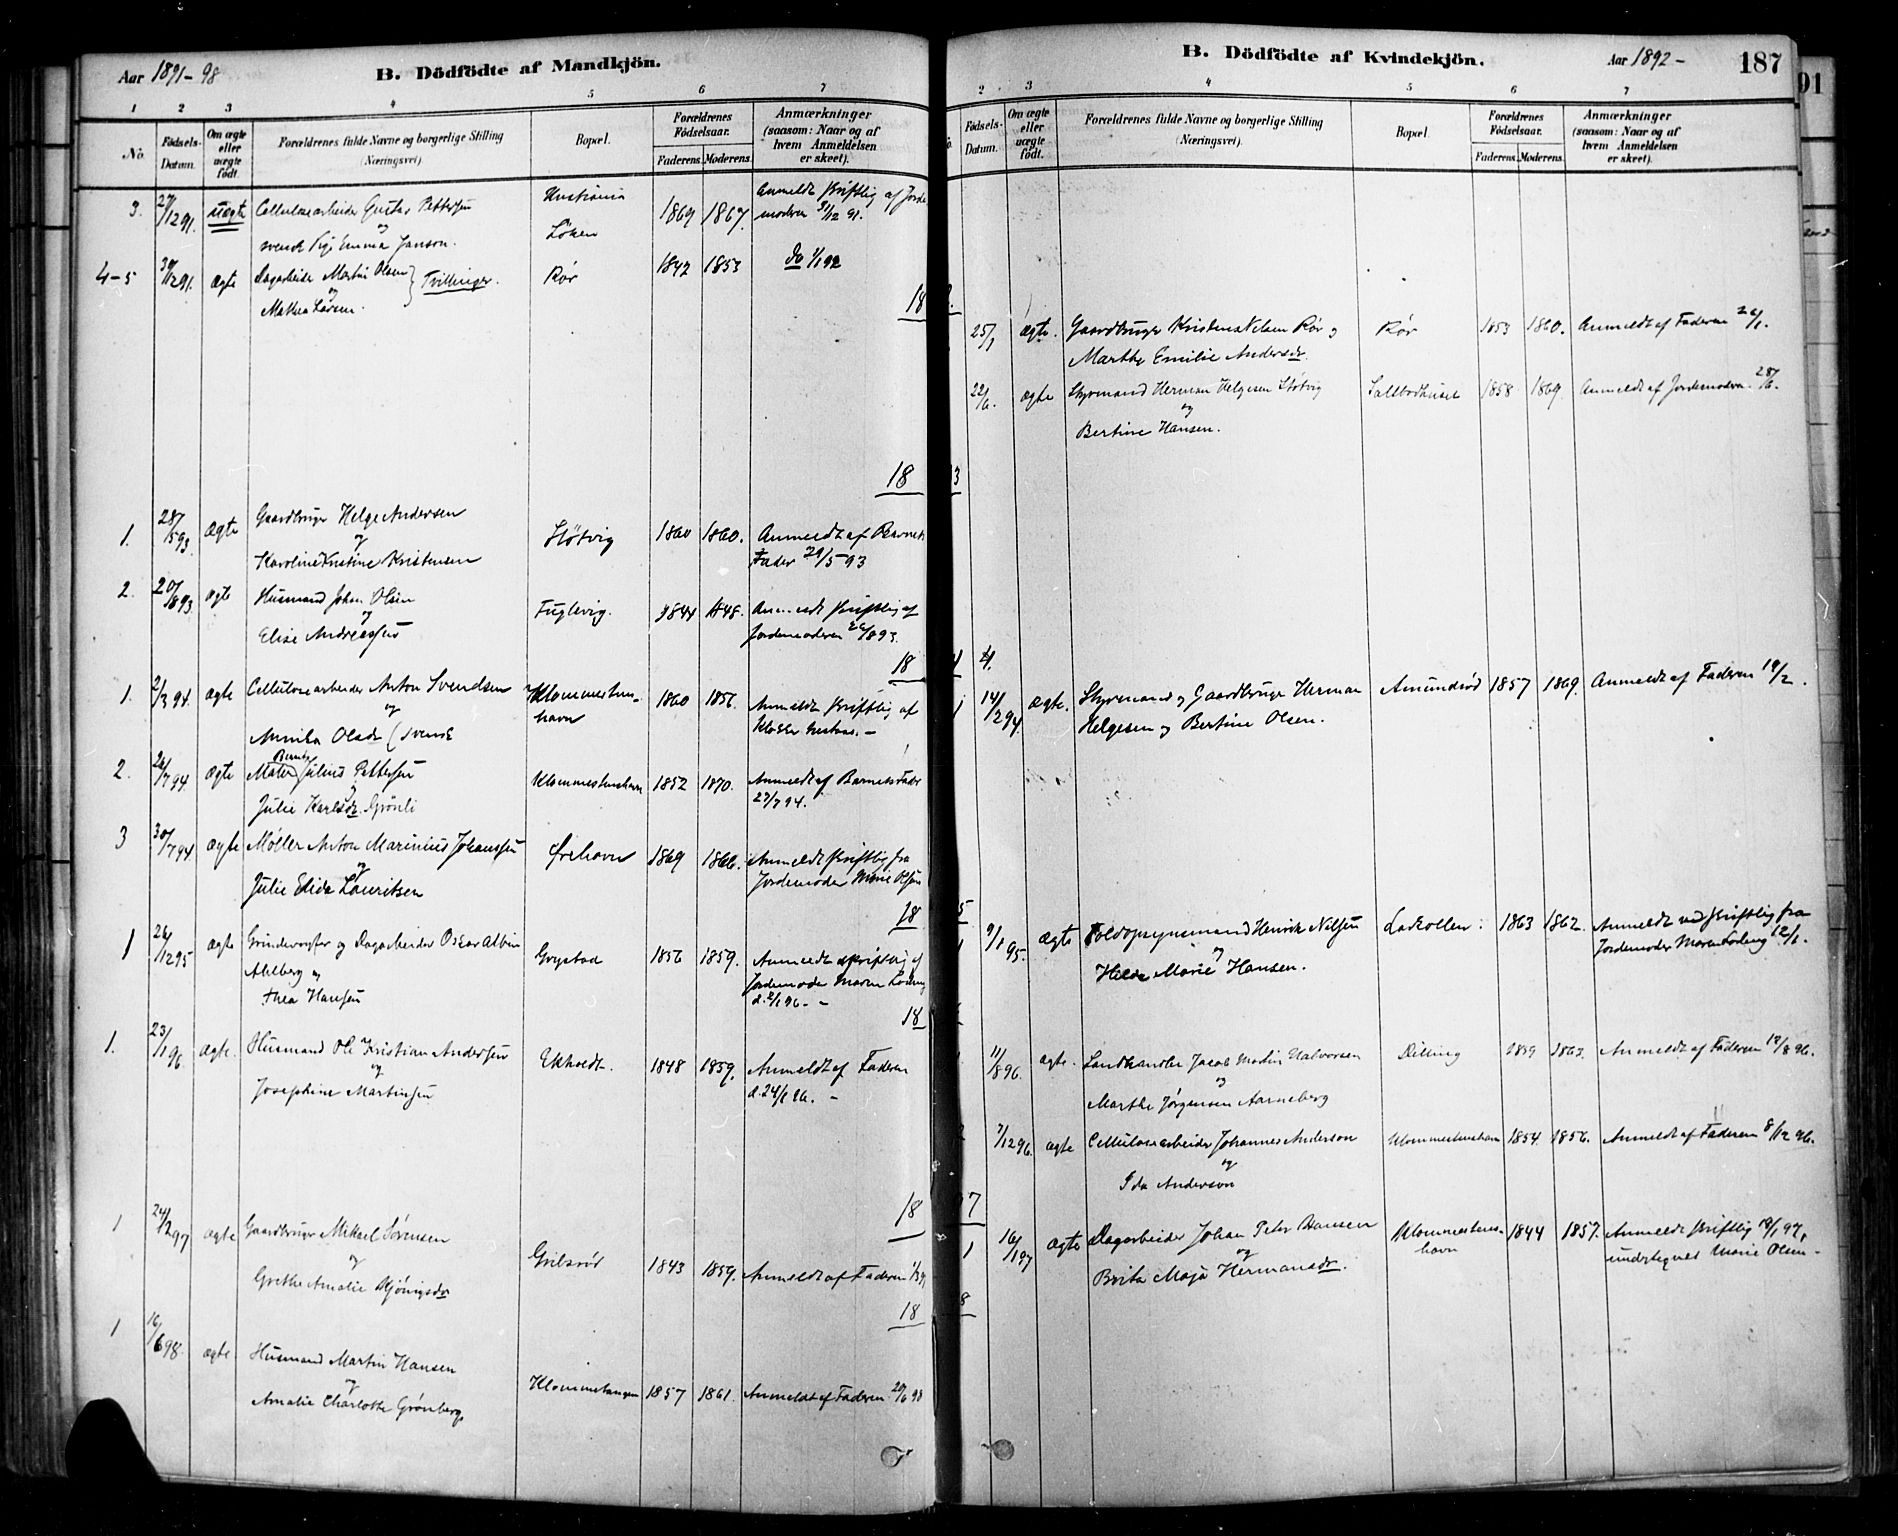 Aar 1891-98
B. Dödfödte af Mandkjön.
1 2 3 4 5 6 7
No. Födsels-Datum. Om ægte eller uægte födt. Forældrenes fulde Navne og borgerlige Stilling (Næringsvei) Bopæl. Forældrenes Födselsaar. Faderens. Moderens. Anmærkninger (saasom: Naar og af hvem Anmeldelsen er skeet).
3. 27/12 91. uægte Cellulosearbeider Gustav Pettersen Kristiania 1869 1867. Anmeldt skriftlig af Jorde-
og
svensk Pige Emma Janson. Løken moderen 31/12 91.
4-5 30/12 91. ægte Dagarbeider Martin Olsen Tvillinger. Rör 1842 1853 do 2/1 92
og
Mathea Larsen.
18
18
1. 28/5 93. ægte Gaardbruger Helge Andersen Støtvig 1860 1860. Anmeldt af Barnets
og
Karoline Kristine Kristensen Fader 29/5 93
2. 20/8 93. ægte Husmand Johan Olsen Fuglevig. 1844 1848. Anmeldt skriftlig af
og
Elise Andreassen Jordemoderen 26/8 93.
18
1. 2/3 94. ægte Cellulosearbeider Anton Svendsen Klommesten- 1860 1856. Anmeldt skriftlig af
og havn
Annika Olsdr (svensk
2. 26/7 94. ægte Maler Bernt Julius Pettersen Klommestenshavn 1852 1870. Anmeldt af Barnets Fader
og
Julie Karlsdr. Grönli 27/7 94.
3 30/7 94 ægte Møller Anton Marinius Johanssen Ørehavn 1869 1866. Anmeldt skriftlig fra
og
Julie Elida Lauritsen Jordemoder Marie Olsen
18
1 26/12 95 ægte Grindevogter og Dagarbeider Oskar Albin 1856 1859. Anmeldt skriftlig af
Ahlberg og Jordemoder Maren
Thea Hansen d. 2/1 96. -
18
1. 23/1 96. ægte. Husmand Ole Kristian Andersen Ekholdt. 1848 1859. Anmeldt af Faderen
og
Josephine Martinsen d. 24/1 96. -
18
1 24/2 97 ægte Gaardbruger Mikael Sørensen Grilsrød 1843 1859. Anmeldt af Faderen
og
Grethe Amalie
18
1 16/6 98. ægte Husmand Martin Hansen 1857 1861. Anmeldt af Faderen 20/6 98
og
Amalie Charlotte Grønberg
B. Dödfödte af Kvindekjön.
Aar 1892- 187
2 3 4 5 6 7
Födsels-Datum. Om ægte eller uægte födt. Forældrenes fulde Navne og borgerlige Stilling (Næringsvei) Bopæl. Forældrenes Födselsaar. Faderens. Moderens. Anmærkninger (saasom: Naar og af hvem Anmeldelsen er skeet).
25/1 ægte. Gaardbruger Kristen Nelsen Rör og Rör 1853 1860. Anmeldt af Faderen 26/1.
Marthe Emilie Andersdr.
22/6. ægte Styrmand Herman Helgesen Støtvig Saltbodhuset 1858 1869. Anmeldt af Jordemoderen 28/6.
og
Bertine Hansen.
3
4.
1 14/2 94. ægte. Styrmand og Gaardbruger Herman Amundrød 1857 1869. Anmeldt af Faderen 19/2.
Helgesen og Bertine Olsen.
5
1 9/1 95. ægte Toldopsynsmand Henrik Nilsen Larkollen 1863 1862. Anmeldt skriftlig fra
og
Hilda Marie Hansen. Jordemoder Maren 12/1.
11/8 96. ægte. Landhandler Jacob Martin Halvorsen Dilling 1859 1863. Anmeldt af Faderen 12/8 96.
og
Marthe Jørgensen Aarneberg
7/12 96. ægte Cellulosearbeider Johannes Anderson Klommestenshavn 1854. 1856. Anmeldt af Faderen 8/12 96.
og
Ida Anderson
7
1 16/1 97 ægte Dagarbeider Johan Peter Hansen Klommestens- 1844 1857. Anmeldt skriftlig 19/1 97,
og havn
Brita Maja Hermansdr. undertegnet Marie Olsen -
8